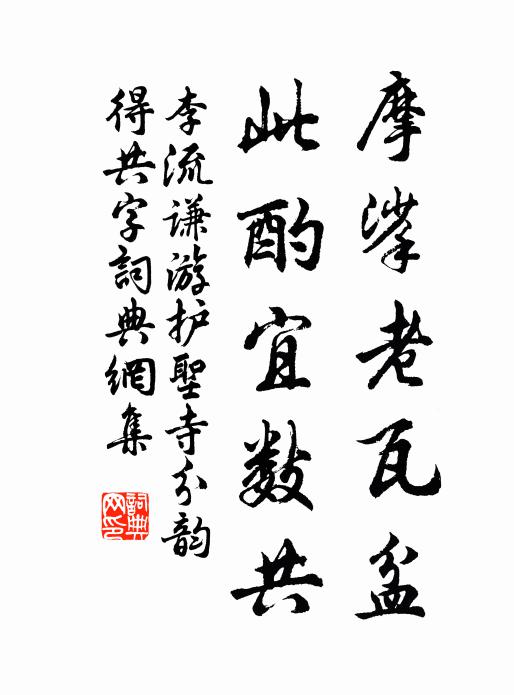 摩挲老瓦盆
此酌宜数共
李流谦游护聖寺分韵
得共字詞典網集
詞典网印